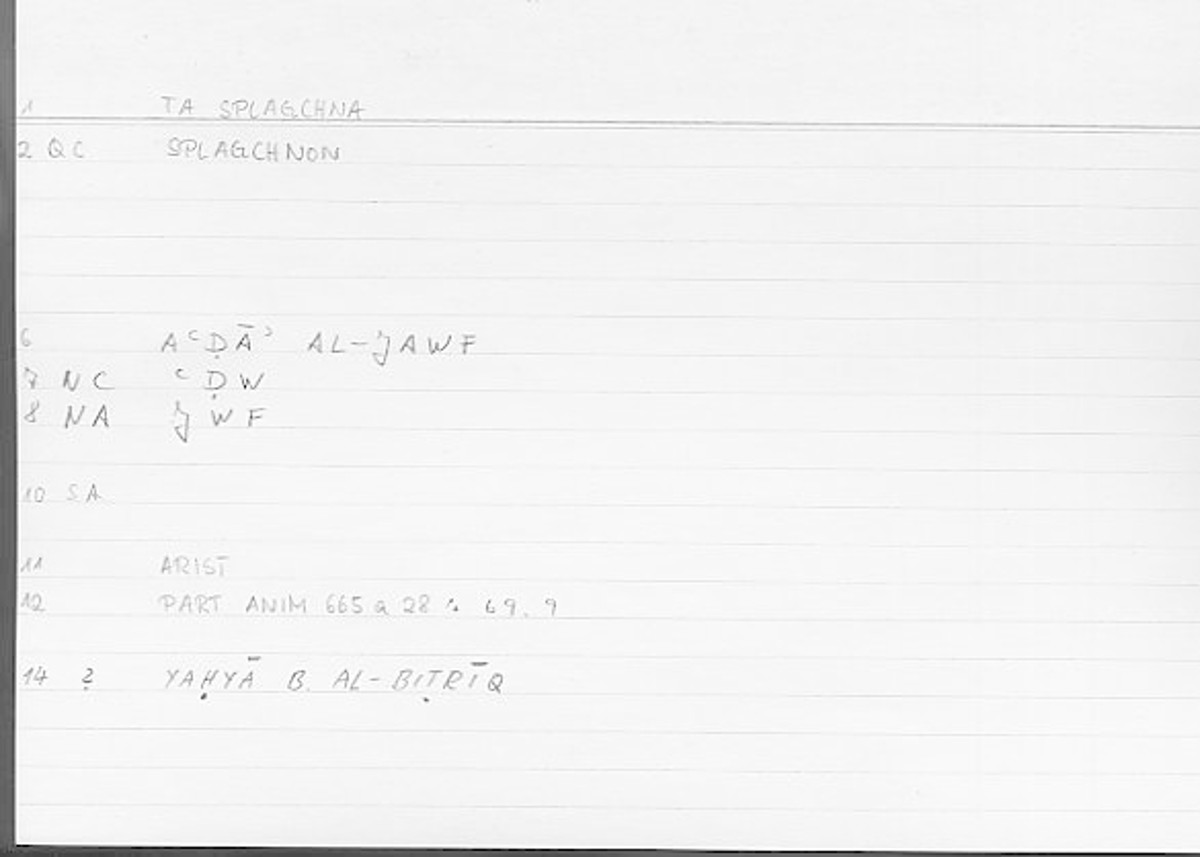 1 TA SPLAGCHNA
2 QC SPLAGCHNON
6 AʿḌĀʾ AL-JAWF
7 NC ʿḌW
8 NA JWF
10 SA
11 ARIST
12 PART ANIM 665 a 28 ∴ 69.9
14 ? YAḤYĀ B. AL-BIṬRĪQ